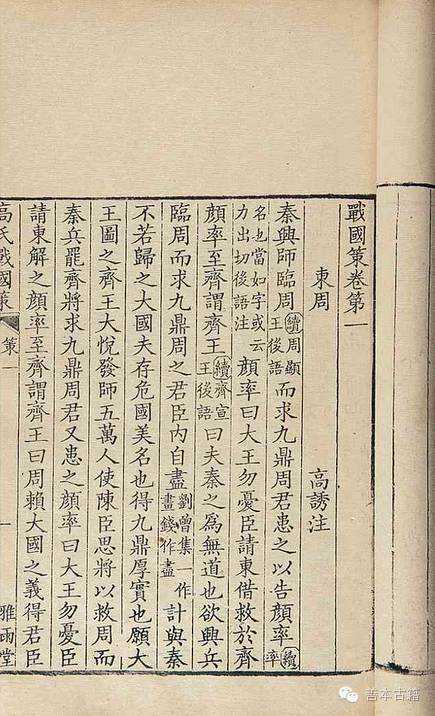 戰國策卷第一
東周 高誘注
秦興師臨周續周顯王後語而求九鼎周君患之以告顏率續率
名也當如字或云力出切後語注顏率曰大王勿憂臣請東借救於齊
顏率至齊謂齊王續齊宣王後語曰夫秦之為無道也欲興兵
臨周而求九鼎周之君臣內自盡劉曾集一作畫錢作盡計與秦
不若歸之大國夫存危國美名也得九鼎厚實也願大
王圖之齊王大悅發師五萬人使陳臣思將以救周而
秦兵罷齊將求九鼎周君又患之顏率曰大王勿憂臣
請東解之顏率至齊謂齊王曰周賴大國之義得君臣
高氏戰國策 策一 一 雅雨堂
善本古籍